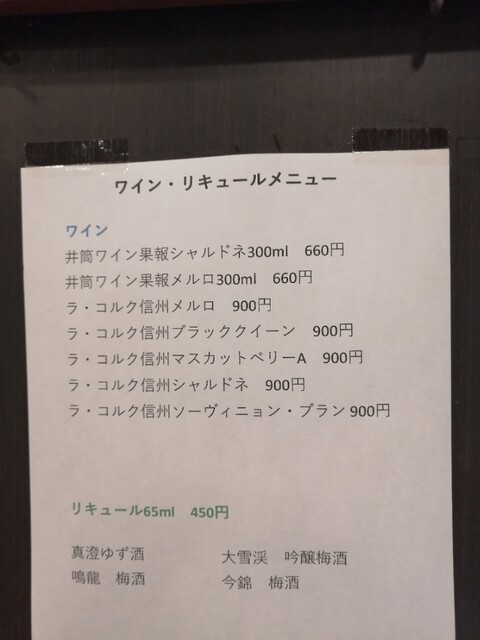 ワイン・リキュールメニュー
ワイン
井筒ワイン果報シャルドネ300ml 660円
井筒ワイン果報メルロ300ml 660円
ラ・コルク信州メルロ 900円
ラ・コルク信州ブラッククイーン 900円
ラ・コルク信州マスカットベリーA 900円
ラ・コルク信州シャルドネ 900円
ラ・コルク信州ソーヴィニョン・ブラン 900円
リキュール65ml 450円
真澄ゆず酒 大雪渓 吟醸梅酒
鳴龍 梅酒 今錦 梅酒